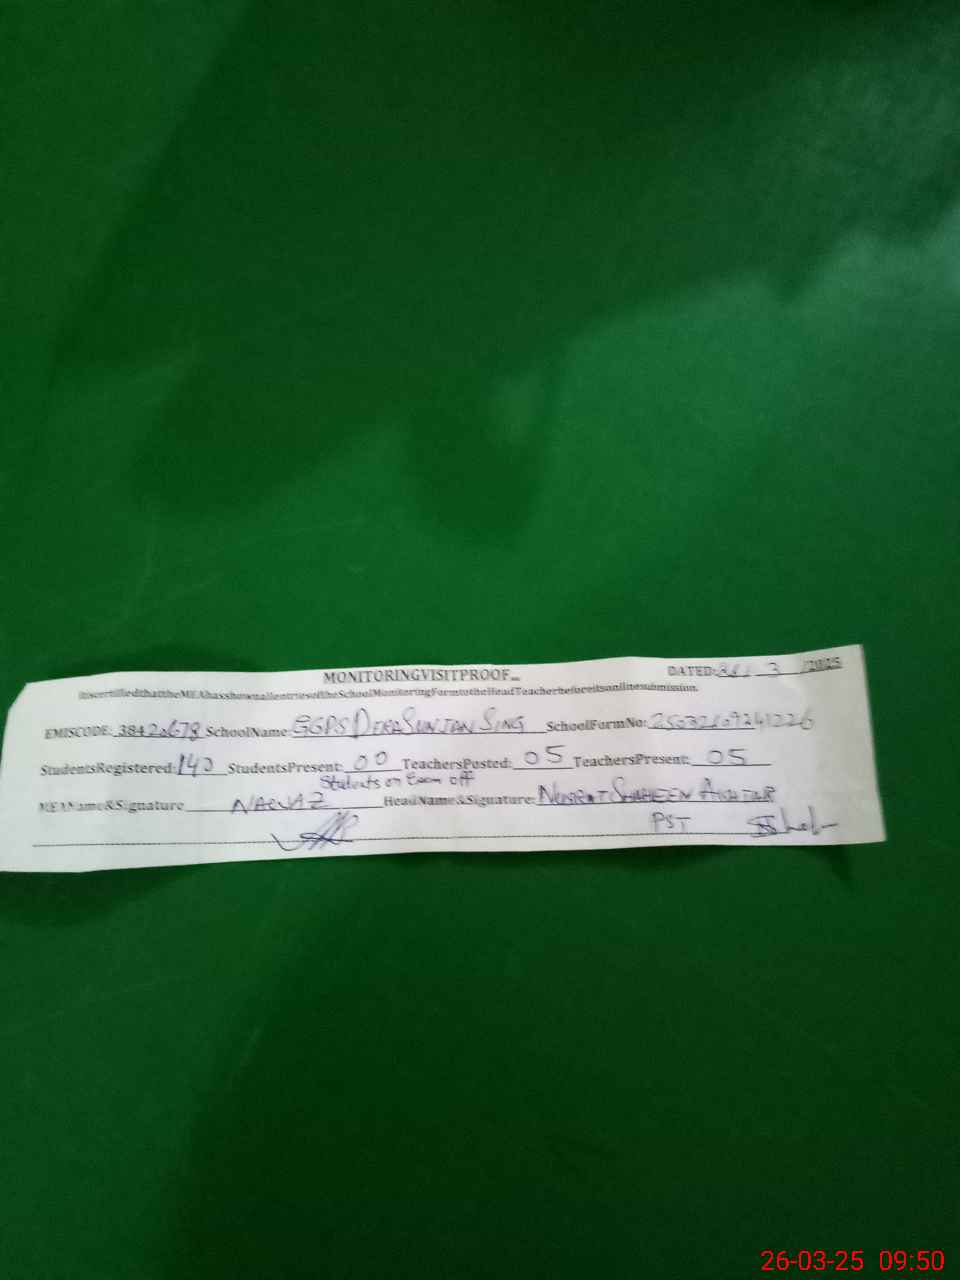 MONITORINGVISITPROOF
DATED: 26/ 3 /2025
itiscertifiedthattheMEAhasshownallentriesoftheSchoolMonitoringFormtotheHeadTeacherbeforeitsonlinesubmission.
EMISCODE: 38420678 SchoolName: GGPS DERA SUNJAN SING SchoolFormNo:
StudentsRegistered: 140 StudentsPresent: 00 TeachersPosted: 05 TeachersPresent: 05
Students on Exam off
MEAName&Signature NAWAZ HeadName&Signature: NUSRAT SHAHEEN AKHTAR
PST
26-03-25 09:50